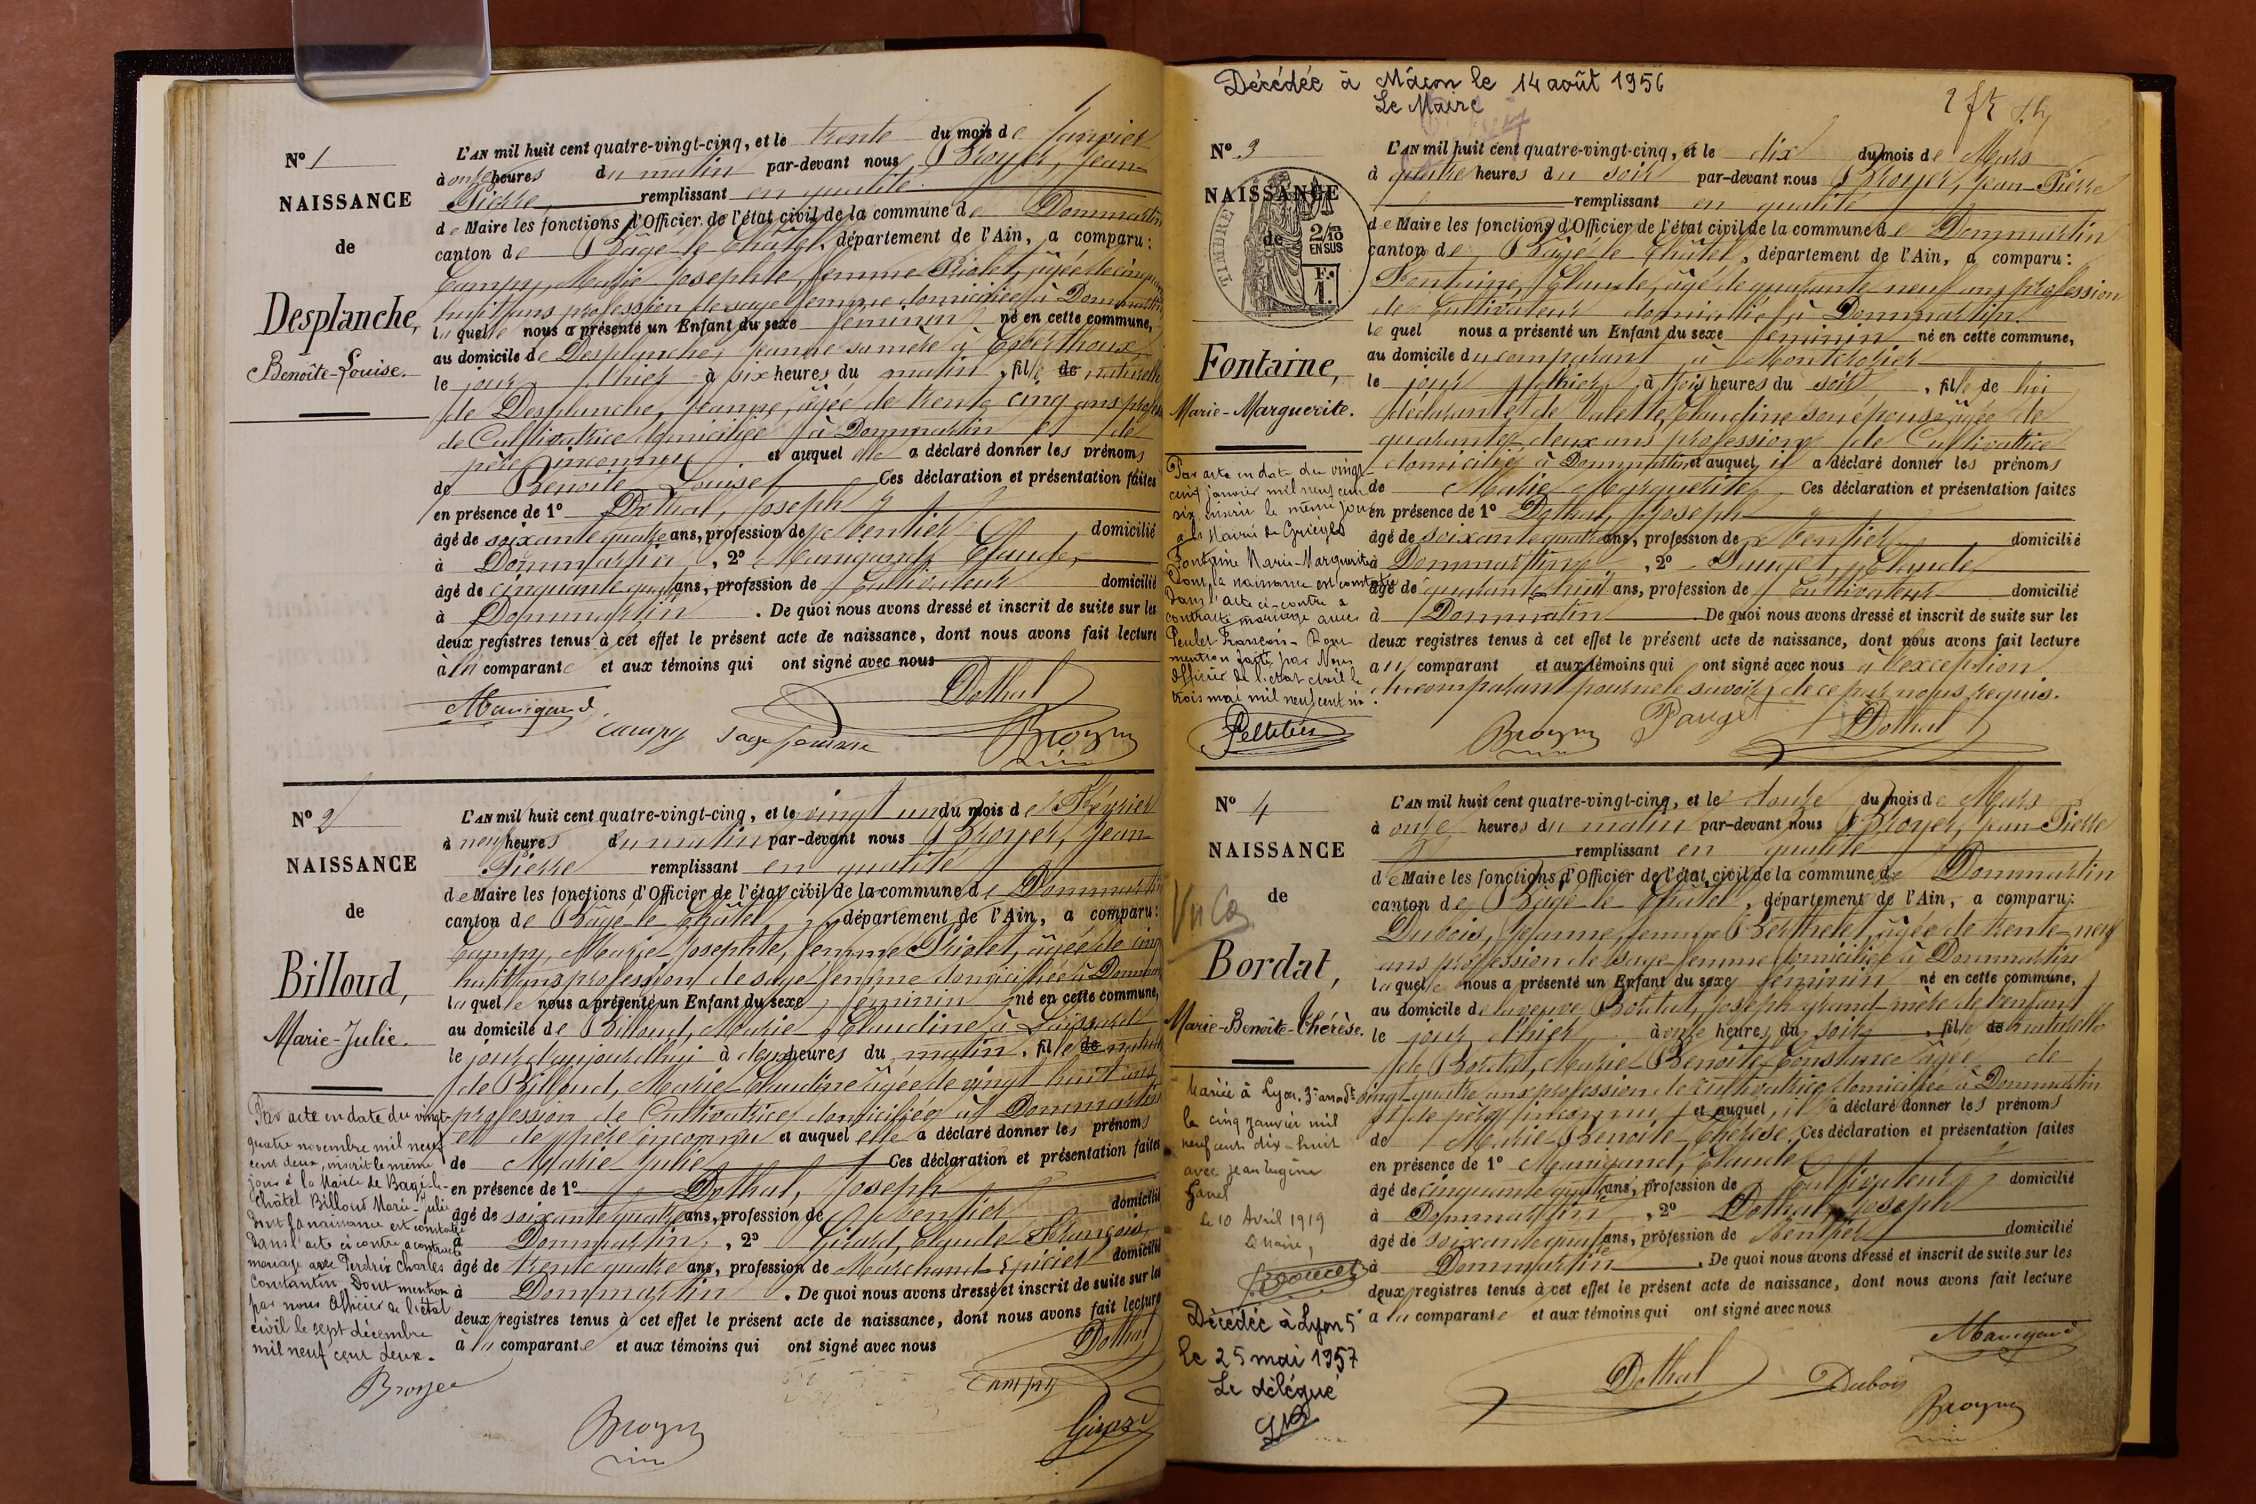 N° 1
NAISSANCE
de
Desplanche,
Benoîte-Louise.
L'AN mil huit cent quatre-vingt-cinq, et le trente du mois de Janvier
à onze heures du matin par-devant nous Broyer, Jean
Pierre, remplissant en qualité
de Maire les fonctions d'Officier de l'état civil de la commune de Dommartin
canton de Bâgé-le-Châtel, département de l'Ain, a comparu:
Campy, Marie Josephte, femme Riolet, âgée de cinquante
huit ans profession de sage femme domiciliée à Dommartin
laquelle nous a présenté un Enfant du sexe féminin né en cette commune,
au domicile de Desplanche, Jeanne sa mère à
le jour d'hier à six heures du matin, fille de naturelle
de Desplanche, Jeanne, âgée de trente cinq ans profession
de Cultivatrice domiciliée à Dommartin et de
père inconnu et auquel elle a déclaré donner les prénoms
de Benoîte Louise Ces déclaration et présentation faites
en présence de 1° Dothal, Joseph
âgé de soixante quatre ans, profession de rentier domicilié
à Dommartin, 2° Manigand, Claude,
âgé de cinquante quatre ans, profession de Cultivateur domicilié
à Dommartin. De quoi nous avons dressé et inscrit de suite sur les
deux registres tenus à cet effet le présent acte de naissance, dont nous avons fait lecture
à la comparante et aux témoins qui ont signé avec nous
Manigand Dothal
Campy sage femme Broyer
N° 2
NAISSANCE
de
Billoud,
Marie-Julie.
Par acte en date du vingt
quatre novembre mil neuf
cent deux, inscrit le même
jour à la Mairie de Bagé-le-
Châtel Billoud Marie-Julie
dont la naissance est constatée
dans l'acte ci contre a contracté
mariage avec Perdrix Charles
Constantin. Dont mention
par nous Officier de l'état
civil le sept décembre
mil neuf cent deux.
Broyer
L'AN mil huit cent quatre-vingt-cinq, et le vingt un du mois de Février
à neuf heures du matin par-devant nous Broyer, Jean
Pierre remplissant en qualité
de Maire les fonctions d'Officier de l'état civil de la commune de Dommartin
canton de Bâgé-le-Châtel, département de l'Ain, a comparu:
Campy, Marie Josephte, femme Riolet, âgée de cinq
huit ans profession de sage-femme domiciliée à Dommartin
laquelle nous a présenté un Enfant du sexe féminin né en cette commune,
au domicile de Billoud, Marie-Claudine à
le jour d'aujourd'hui à deux heures du matin, fille de naturelle
de Billoud, Marie-Claudine âgée de vingt huit ans
profession de Cultivatrice domiciliée à Dommartin
et de père inconnu et auquel elle a déclaré donner les prénoms
de Marie Julie Ces déclaration et présentation faites
en présence de 1° Dothal, Joseph
âgé de soixante quatre ans, profession de rentier domicilié
à Dommartin, 2° Girard, Claude François,
âgé de trente quatre ans, profession de Marchand Epicier domicilié
à Dommartin. De quoi nous avons dressé et inscrit de suite sur les
deux registres tenus à cet effet le présent acte de naissance, dont nous avons fait lecture
à la comparante et aux témoins qui ont signé avec nous
Dothal
Campy
Broyer Girard
Décédée à Mâcon le 14 août 1956
Le Maire
N° 3
NAISSANCE
de
TIMBRE
2/10
EN SUS
Fontaine,
Marie-Marguerite.
Par acte en date du vingt
cinq janvier mil neuf cent
six inscrit le même jour
à la Mairie de Grièges
Fontaine Marie-Marguerite
Dont la naissance est constatée
dans l'acte ci-contre a
contracté mariage avec
Peulet François. Dont
mention faite par Nous
Officier de l'état civil le
trois mai mil neuf cent six.
Pelletier
L'AN mil huit cent quatre-vingt-cinq, et le dix du mois de Mars
à quatre heures du soir par-devant nous Broyer, Jean-Pierre
remplissant en qualité
de Maire les fonctions d'Officier de l'état civil de la commune de Dommartin
canton de Bâgé-le-Châtel, département de l'Ain, a comparu:
Fontaine, Claude, âgé de quarante neuf ans profession
de Cultivateur domicilié à Dommartin
lequel nous a présenté un Enfant du sexe féminin né en cette commune,
au domicile du comparant à Montcrozier
le jour d'hier, à trois heures du soir, fille de lui
déclarant et de Valette, Claudine son épouse âgée de
quarante deux ans profession de Cultivatrice
domiciliée à Dommartin et auquel il a déclaré donner les prénoms
de Marie Marguerite. Ces déclaration et présentation faites
en présence de 1° Dothal, Joseph
âgé de soixante quatre ans, profession de rentier domicilié
à Dommartin, 2° Pauget, Claude
âgé de quarante huit ans, profession de Cultivateur domicilié
à Dommartin De quoi nous avons dressé et inscrit de suite sur les
deux registres tenus à cet effet le présent acte de naissance, dont nous avons fait lecture
au comparant et aux témoins qui ont signé avec nous à l'exception
du comparant pour ne le savoir, de ce par nous requis.
Broyer Pauget Dothal
N° 4
NAISSANCE
de
Bordat,
Marie-Benoîte-Thérèse.
Mariée à Lyon, 3e arrondt
le cinq janvier mil
neuf cent dix-huit
avec Jean Eugène
le 10 Avril 1919
Le Maire,
Décédée à Lyon 5e
le 25 mai 1957
Le délégué
L'AN mil huit cent quatre-vingt-cinq, et le douze du mois de Mars
à onze heures du matin par-devant nous Broyer, Jean-Pierre
remplissant en qualité
de Maire les fonctions d'Officier de l'état civil de la commune de Dommartin
canton de Bâgé-le-Châtel, département de l'Ain, a comparu:
Dubois, Jeanne, femme Berthelet, âgée de trente-neuf
ans profession de sage-femme domiciliée à Dommartin
laquelle nous a présenté un Enfant du sexe féminin né en cette commune,
au domicile de la veuve Bordat, Joseph grand-mère de l'enfant
le jour d'hier à onze heures du soir, fille de naturelle
de Bordat, Marie-Benoîte-Constance âgée de
vingt-quatre ans profession de cultivatrice domiciliée à Dommartin
et de père inconnu et auquel il a déclaré donner les prénoms
de Marie-Benoîte-Thérèse. Ces déclaration et présentation faites
en présence de 1° Manigand, Claude
âgé de cinquante quatre ans, profession de Cultivateur domicilié
à Dommartin, 2° Dothal Joseph
âgé de soixante quatre ans, profession de Rentier domicilié
à Dommartin. De quoi nous avons dressé et inscrit de suite sur les
deux registres tenus à cet effet le présent acte de naissance, dont nous avons fait lecture
a la comparante et aux témoins qui ont signé avec nous
Manigand
Dothal Dubois
Broyer